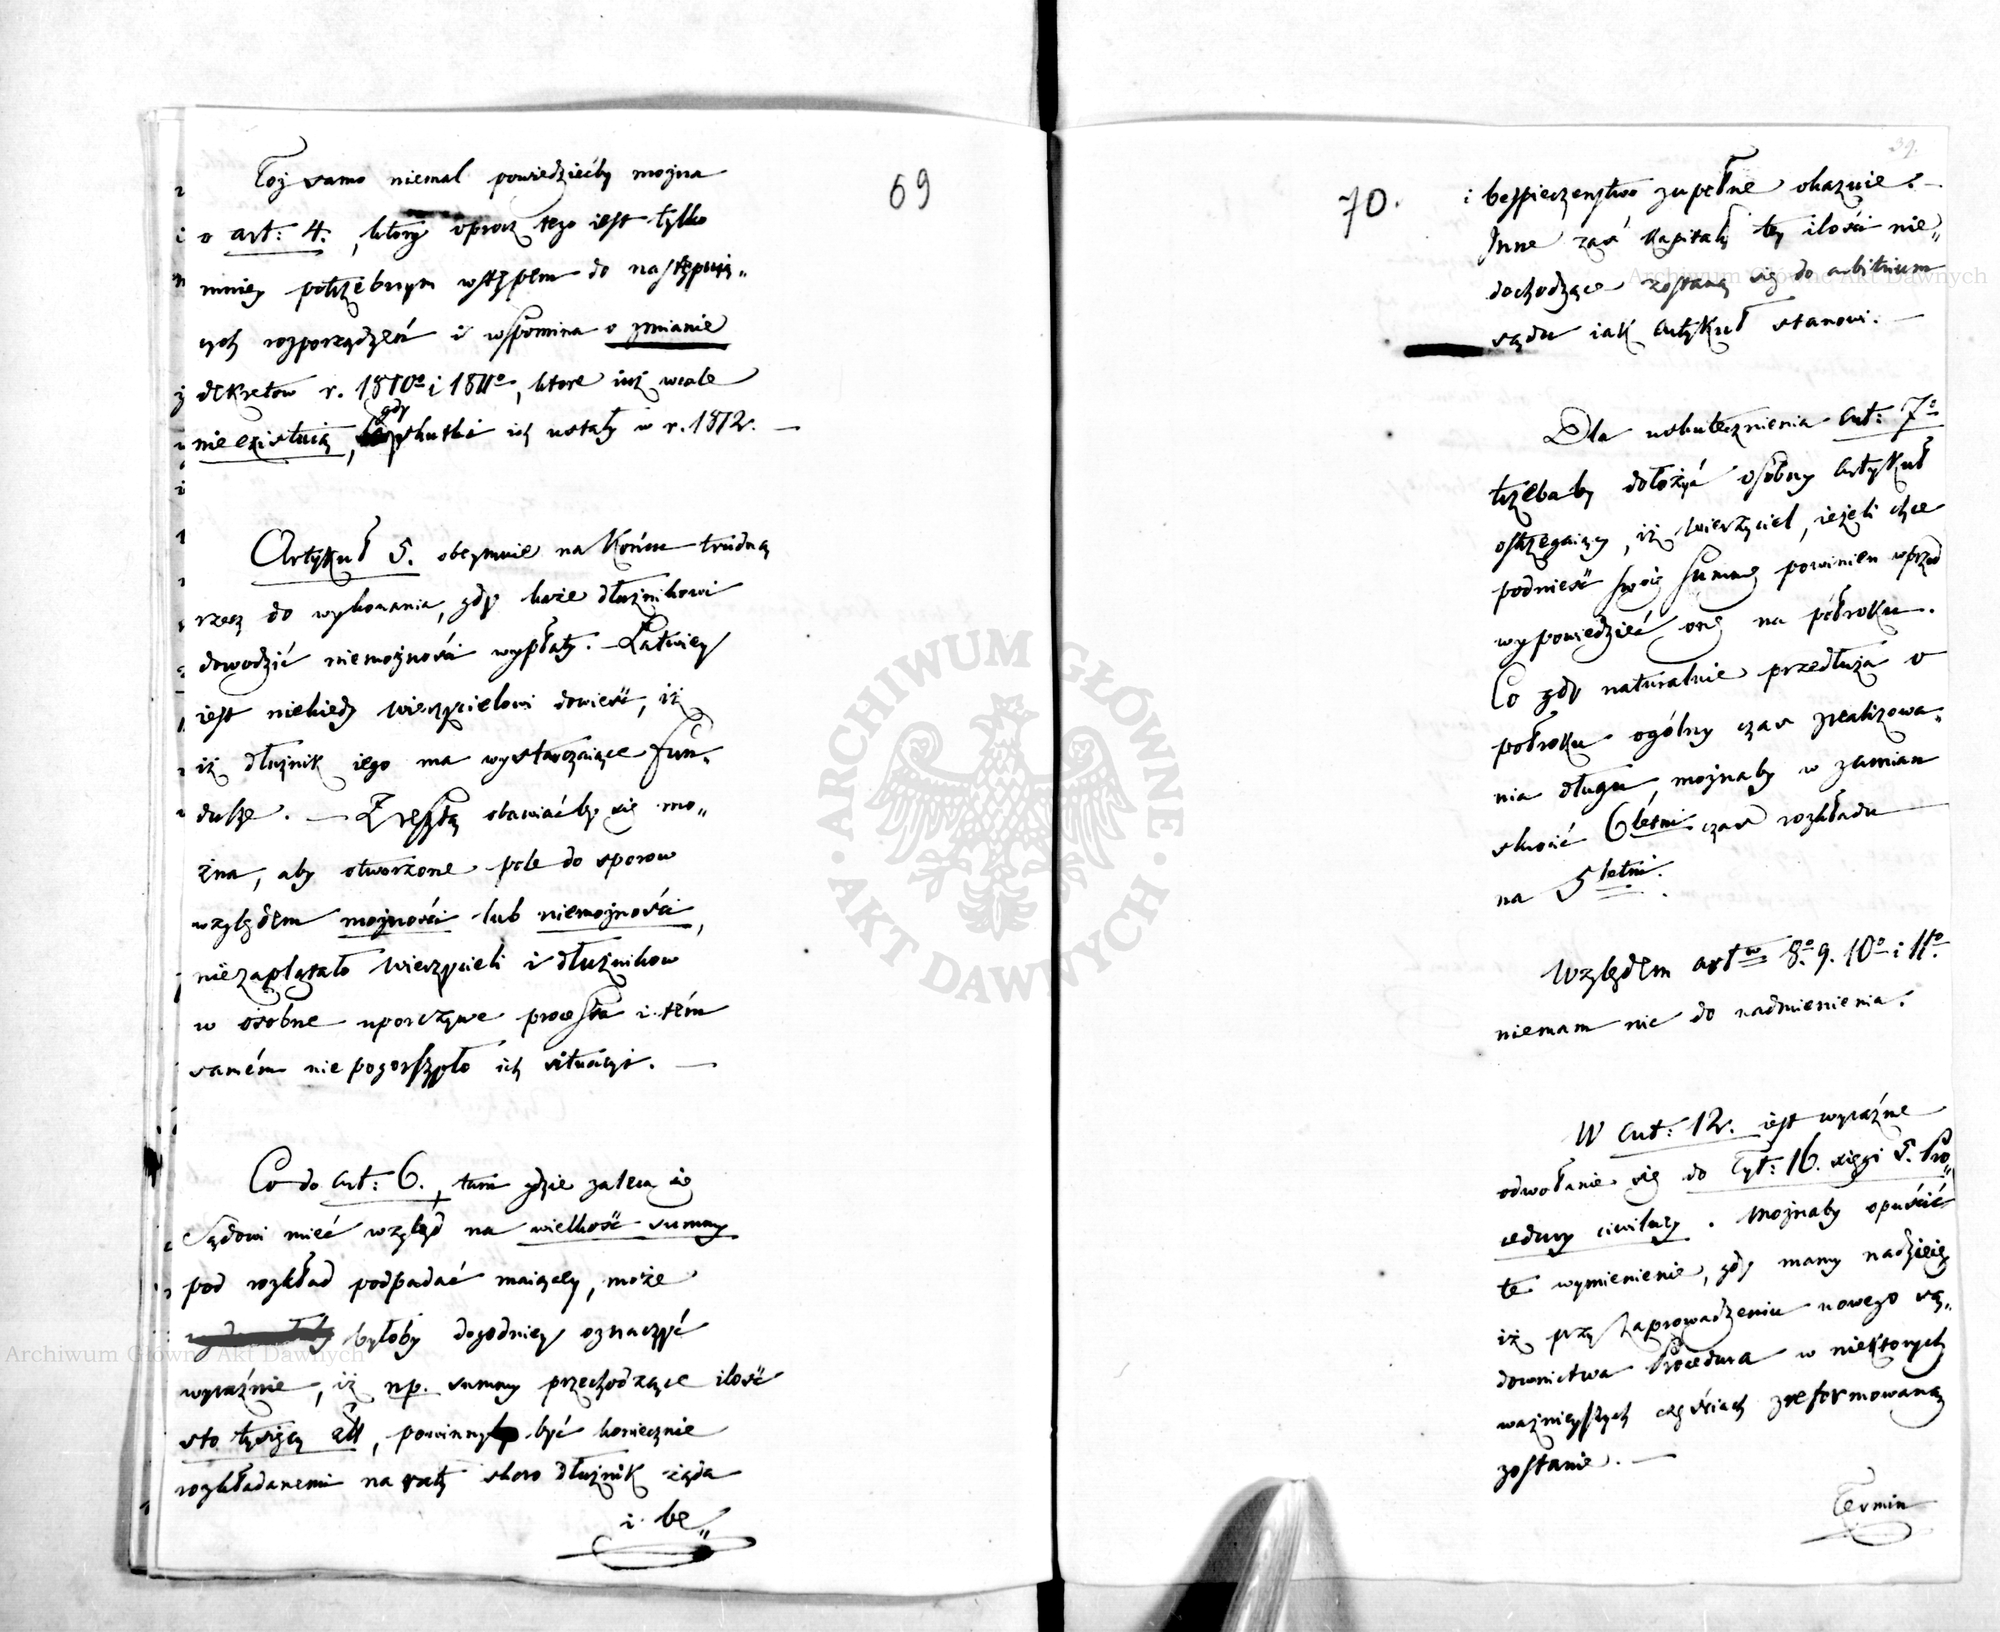 69
Toż samo niemal powiedziećby można
o art: 4., ktory oprocz tego iest tylko
mniey potrzebnym wstępem do następuią„
cych rozporządzeń i wspomina o zmianie
dekretow r. 1810º i 1811º, ktore iuż wcale
nieexistuią, gdy skutki ich ustały w r. 1812. —
Artykuł 5. obeymuie na końcu trudną
rzecz do wykonania, gdy każe dłużnikowi
dowodzić niemożności wypłaty. — Łatwiey
iest niekiedy wierzycielowi dowieść, iż
iż dłużnik iego ma wystarczaiące fun„
dusze. — Zresztą obawiaćby się mo„
żna, aby otworzone pole do sporow
względem możności lub niemożności,
niezaplątało wierzycieli i dłużnikow
w osobne uporczywe processa i tém
samém niepogorszyło ich situacyi. —
Co do art: 6., tam gdzie zaleca się
Sądowi mieć wzgląd na wielkość summy
pod rozkład podpadać maiącey, może
byłoby dogodniey oznaczyć
wyraźnie, iż np. summy przechodzące ilość
sto tysięcy złł, powinny być koniecznie
rozkładanemi na raty skoro dłużnik żąda
i be„
39.
70.
i bespieczeństwo zupełne okazuie. —
Inne zaś kapitały tey ilości nie„
dochodzące zostaną się do arbitrium
sądu iak artykuł stanowi. —
Dla uskutecznienia art: 7º
trzebaby dołożyć osobny artykuł
ostrzegaiący, iż wierzyciel, ieżeli chce
podnieść swoię summę powinien wprzód
wypowiedzieć onę na półroku.
Co gdy naturalnie przedłuża o
półroku ogólny czas zrealizowa„
nia długu, możnaby w zamian
skrócić 6letni czas rozkładu
na 5letni.
Względem artów 8º. 9. 10º i 11º.
niemam nic do nadmienienia.
W art: 12. iest wyraźne
odwołanie się do Tyt: 16. xięgi 5. Pro„
cedury cywilney. Możnaby opuścić
te wymienienie, gdy mamy nadzieię
iż przy zaprowadzeniu nowego są„
downictwa Procedura w niektorych
ważnieyszych częściach zreformowaną
zostanie. —
Termin
ARCHIWUM GŁÓWNE
AKT DAWNYCH
Archiwum Główne Akt Dawnych
Archiwum Główne Akt Dawnych